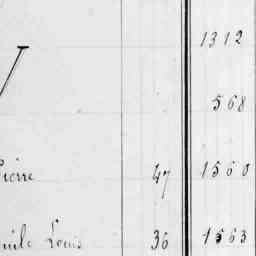 1312
568
Pierre 47 1560
mile Louis 36 1563